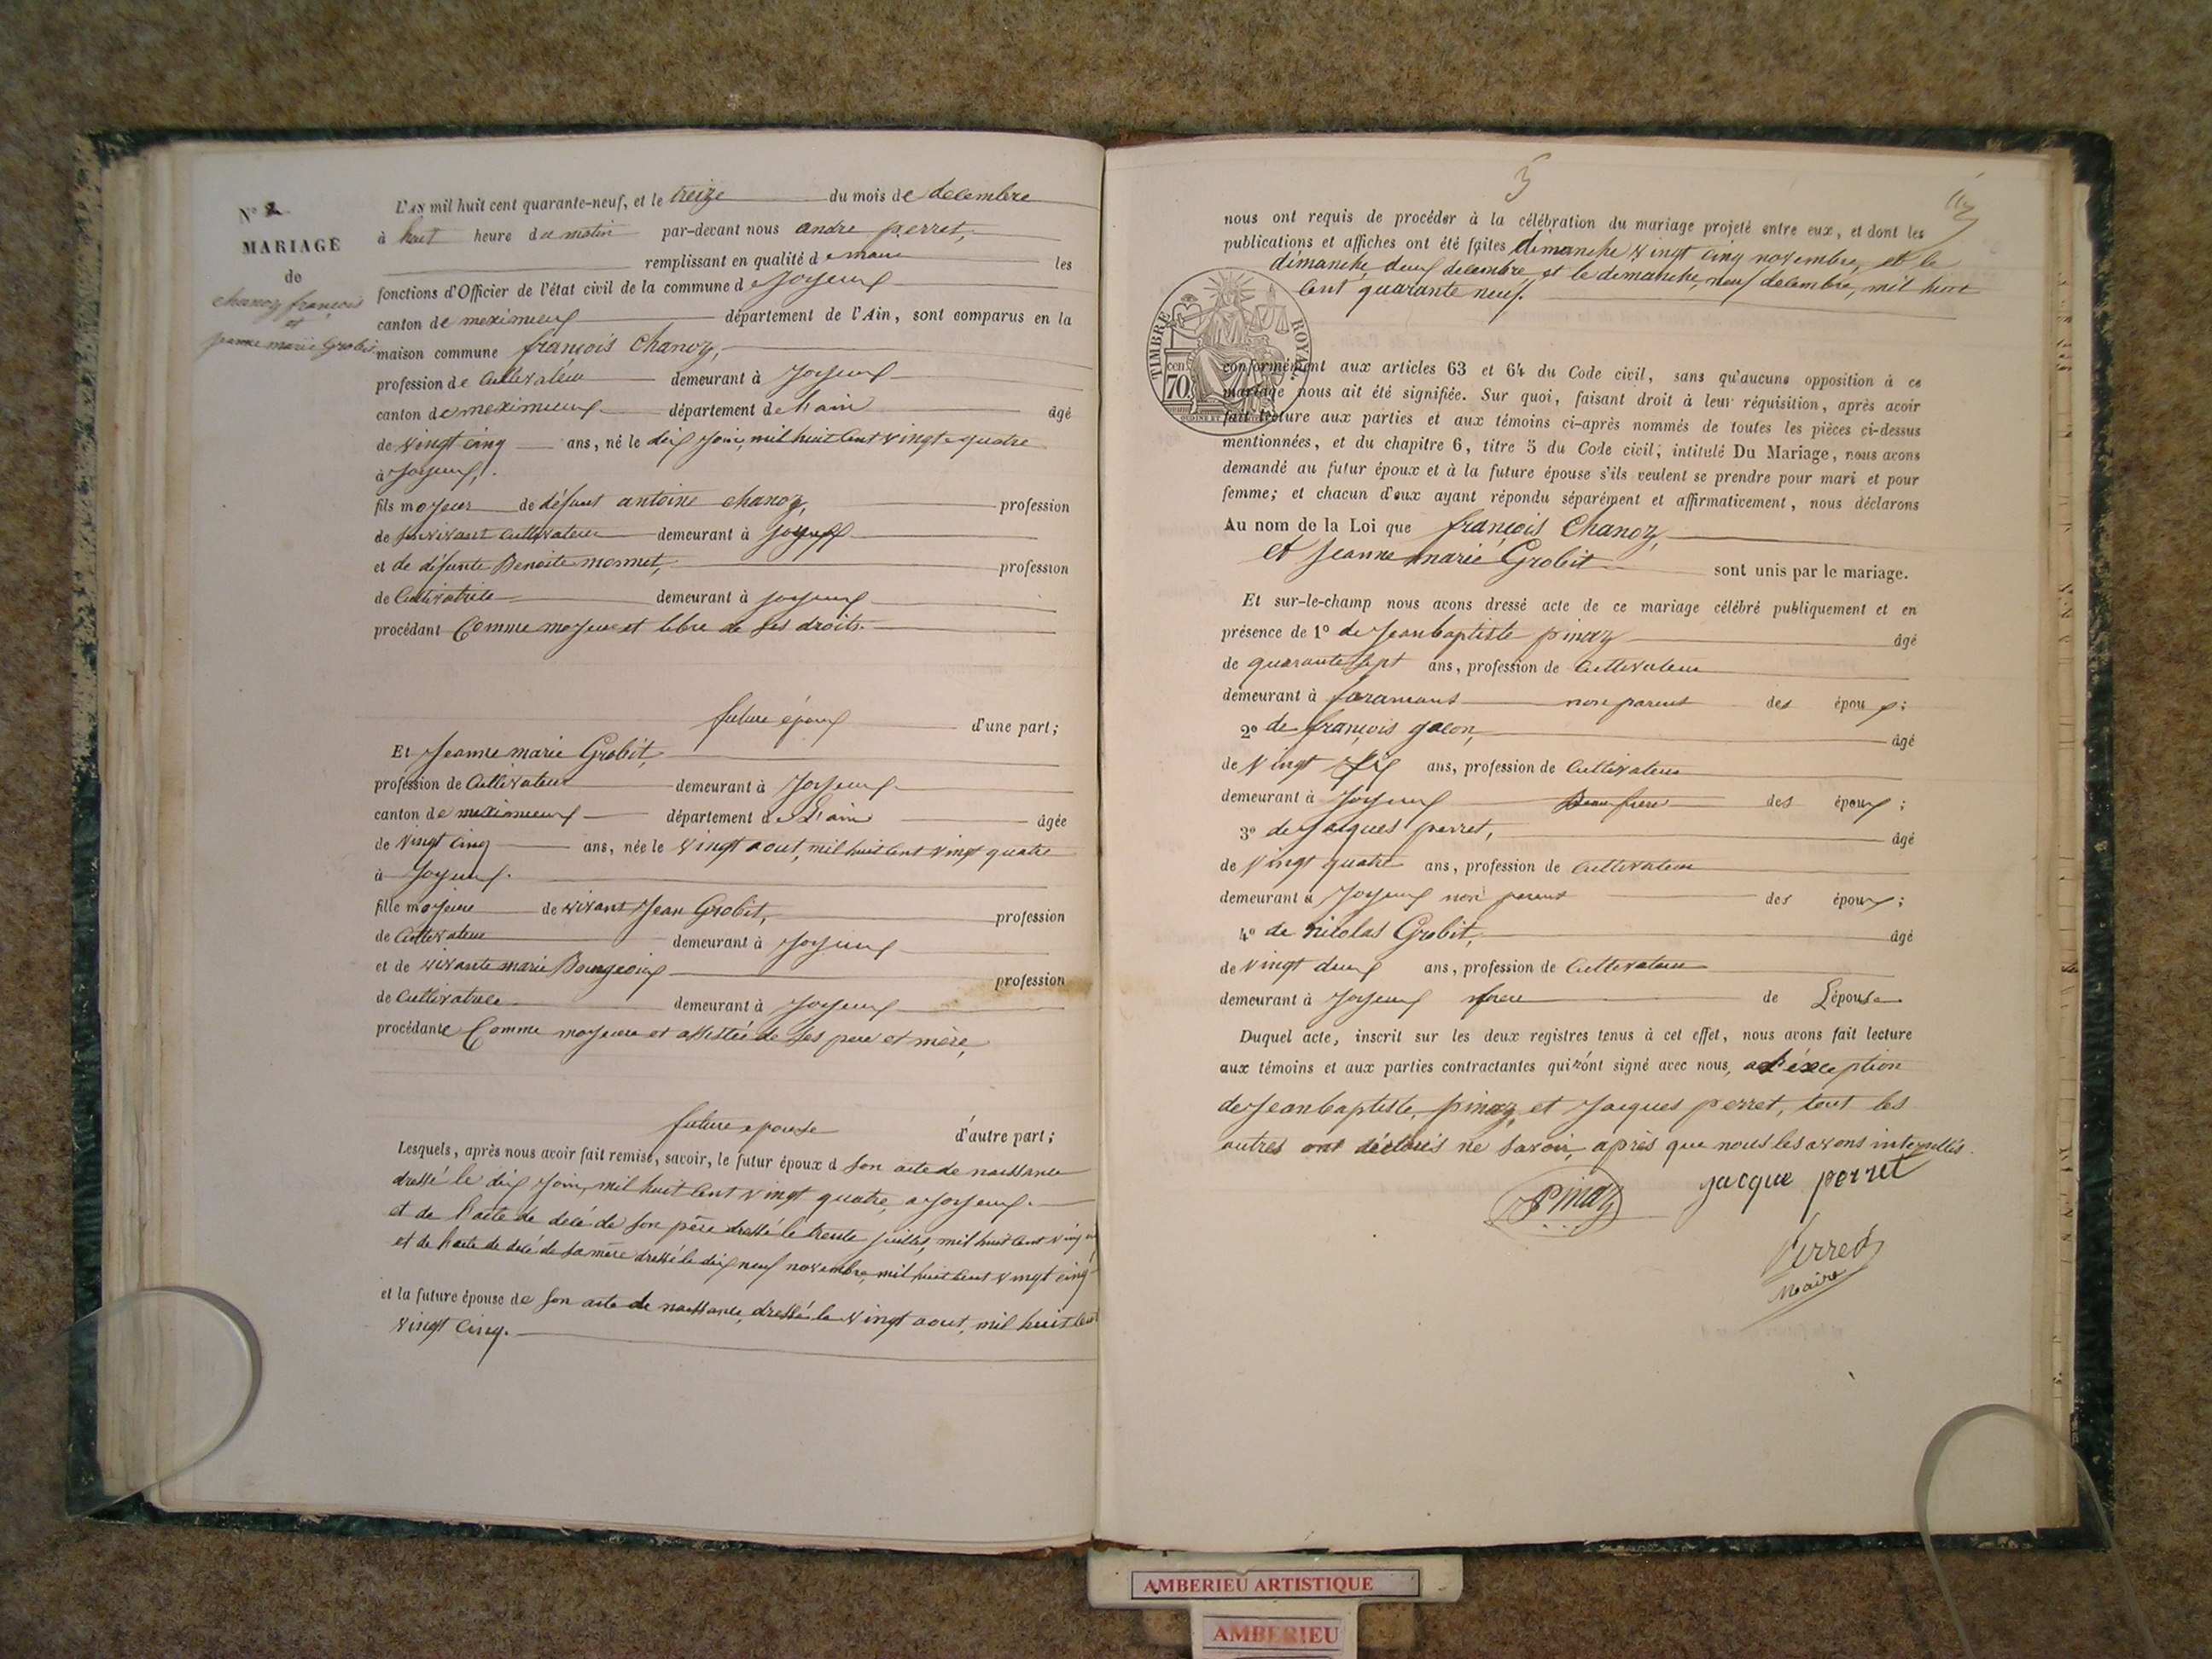 N° 2
MARIAGE
de
chanoz françois
et
jeanne marie Grobit
L'AN mil huit cent quarante-neuf, et le treize du mois de decembre
à huit heure du matin par-devant nous andre perret,
remplissant en qualité de maire les
fonctions d'Officier de l'état civil de la commune de Joyeux
canton de meximieux département de l'Ain, sont comparus en la
maison commune françois Chanoz,
profession de Cultivateur demeurant à Joyeux
canton de meximieux département de l'ain âgé
de vingt cinq ans, né le dix Join, mil huit Cent vingt quatre
à Joyeux,
fils majeur de défunt antoine chanoz, profession
de Son vivant Cultivateur demeurant à Joyeux
et de défunte Benoite monnet, profession
de Cultivatrice demeurant à Joyeux
procédant Comme majeur et libre de ses droits.
future époux d'une part;
Et Jeanne marie Grobit,
profession de Cultivateur demeurant à Joyeux
canton de meximieux département de L'ain âgée
de vingt cinq ans, née le vingt aout, mil huit Cent vingt quatre
à Joyeux.
fille majeure de vivant Jean Grobit, profession
de Cultivateur demeurant à Joyeux
et de vivante marie Bourgeois profession
de Cultivatrice demeurant à Joyeux
procédante Comme majeure et assistée de Ses pere et mère,
future epouse d'autre part;
Lesquels, après nous avoir fait remise, savoir, le futur époux d Son acte de naissance
dressé le dix Join, mil huit Cent vingt quatre, a Joyeux.
et de l'acte de décé de Son père dressé le trente juillet, mil huit Cent
et de l'acte de décé de Sa mère dressé le dix neuf novembre, mil huit Cent vingt cinq
et la future épouse de Son acte de naissance, dressé le vingt aout, mil huit Cent
vingt Cinq.
3
nous ont requis de procéder à la célébration du mariage projeté entre eux, et dont les
publications et affiches ont été faites dimanche vingt cinq novembre, et le
dimanche deux decembre et le dimanche, neuf decembre, mil huit
Cent quarante neuf.
TIMBRE ROYAL
cen.
70
conformément aux articles 63 et 64 du Code civil, sans qu'aucune opposition à ce
mariage nous ait été signifiée. Sur quoi, faisant droit à leur réquisition, après avoir
fait lecture aux parties et aux témoins ci-après nommés de toutes les pièces ci-dessus
mentionnées, et du chapitre 6, titre 5 du Code civil, intitulé Du Mariage, nous avons
demandé au futur époux et à la future épouse s'ils veulent se prendre pour mari et pour
femme; et chacun d'eux ayant répondu séparément et affirmativement, nous déclarons
Au nom de la Loi que françois Chanoz,
et Jeanne marie Grobit sont unis par le mariage.
Et sur-le-champ nous avons dressé acte de ce mariage célébré publiquement et en
présence de 1° de Jean baptiste pinaz âgé
de quarante Sept ans, profession de Cultivateur
demeurant à faramans non parent des époux;
2° de françois galon, âgé
de vingt Six ans, profession de Cultivateur
demeurant à Joyeux Beau frere des époux;
3° de Jacques perret, âgé
de vingt quatre ans, profession de Cultivateur
demeurant à Joyeux non parent des époux;
4° de nicolas Grobit, âgé
de vingt deux ans, profession de Cultivateur
demeurant à Joyeux frere de L'épouse
Duquel acte, inscrit sur les deux registres tenus à cet effet, nous avons fait lecture
aux témoins et aux parties contractantes qui ont signé avec nous, a l'éxception
de Jean baptiste, pinaz, et Jacques perret, tout les
autres ont déclarés ne Savoir, après que nous les avons interpellés.
Pinaz
jacque perret
Perret
Maire
AMBERIEU ARTISTIQUE
AMBERIEU